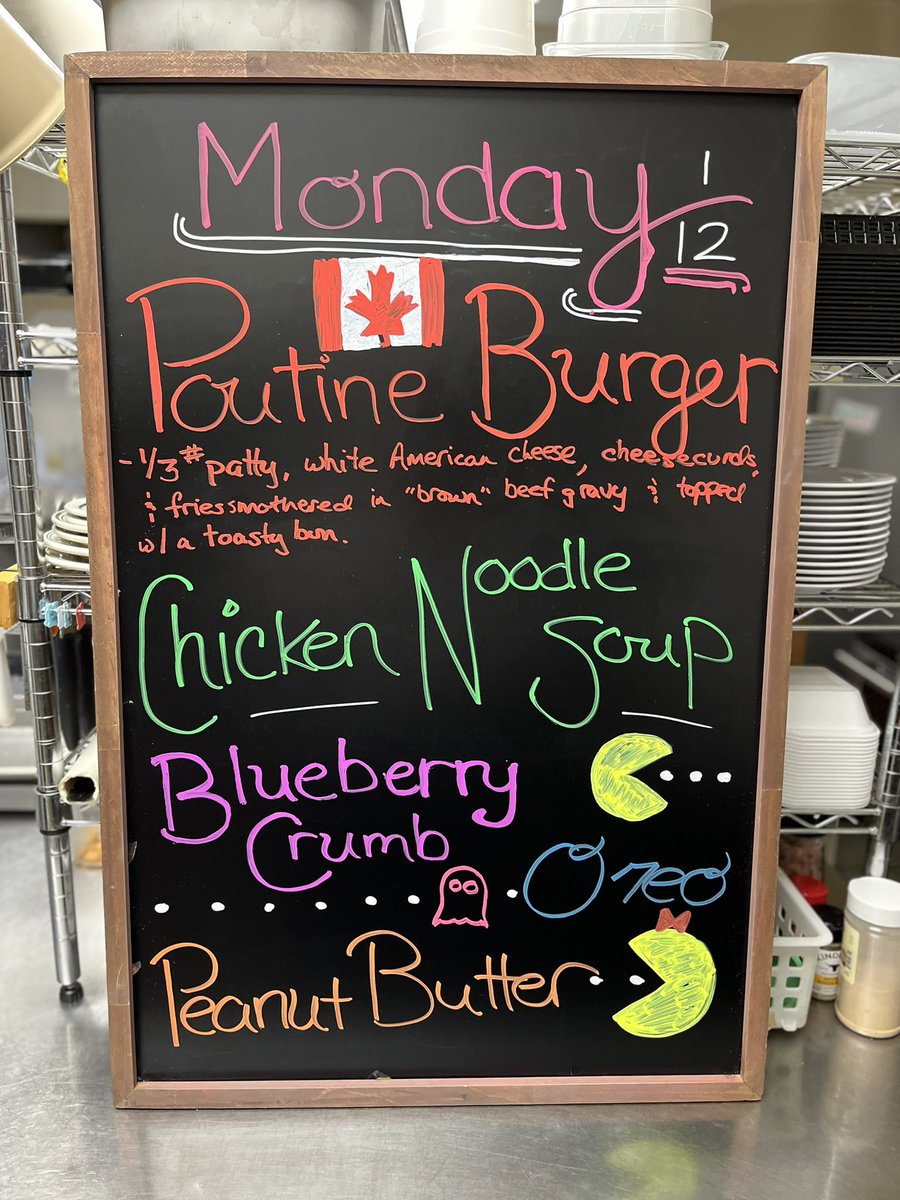 Monday 1/12
Poutine Burger
- 1/3# patty, white American cheese, cheesecurds,
& fries smothered in "brown" beef gravy & topped
w/ a toasty bun.
Chicken Noodle Soup
Blueberry
Crumb
Oreo
Peanut Butter